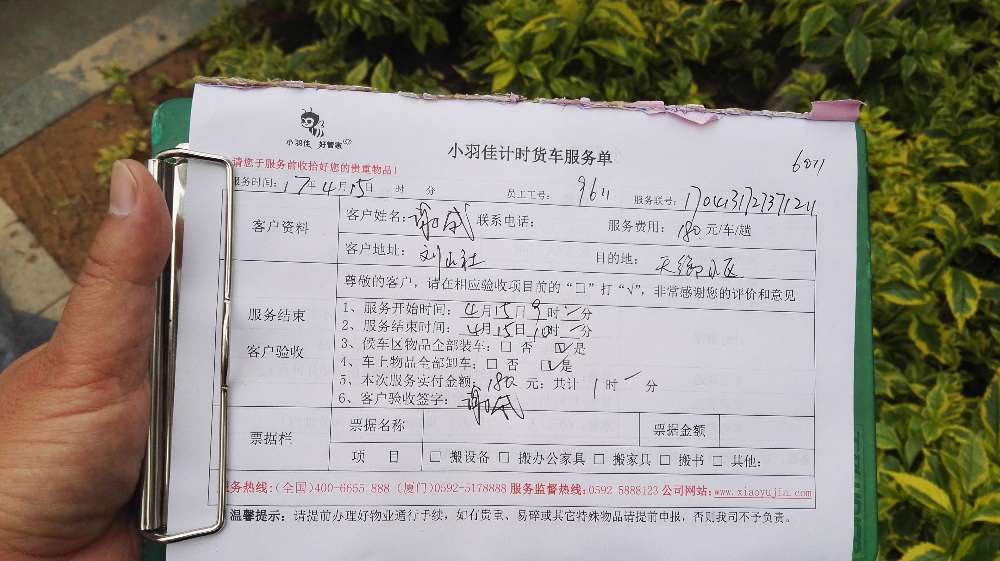 小羽佳 好管家
小羽佳计时货车服务单
6011
请您于服务前收拾好您的贵重物品!
服务时间: 17年4月15日 时 分 员工工号: 9611 服务联号:
客户资料 客户姓名: 联系电话: 服务费用: 180元/车/趟
客户地址: 目的地:
尊敬的客户,请在相应验收项目前的“□”打“√”,非常感谢您的评价和意见
服务结束
客户验收
1、服务开始时间: 4月15日9时 分
2、服务结束时间: 4月15日10时 分
3、候车区物品全部装车: □ 否 ☑是
4、车上物品全部卸车: □ 否 ☑是
5、本次服务实付金额: 180 元; 共计 1 时 分
6、客户验收签字:
票据栏 票据名称 票据金额
项 目 □ 搬设备 □ 搬办公家具 □ 搬家具 □ 搬书 □ 其他:
服务热线:(全国)400-6655 888 (厦门)0592-5178888 服务监督热线:0592 5888123 公司网站:www.xiaoyujia.com
温馨提示: 请提前办理好物业通行手续, 如有贵重、易碎或其它特殊物品请提前申报, 否则我司不予负责。